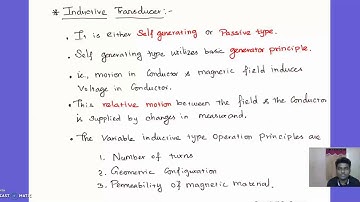 * Inductive Transducer:-
• It is either Self generating or Passive type.
• Self generating type utilizes basic generator principle.
• i.e., motion in Conductor & magnetic field induces
Voltage in Conductor.
• This relative motion between the field & the Conductor
is supplied by changes in measurand.
• The Variable inductive type Operation Principles are
1. Number of turns
2. Geometric Configuration
3. Permeability of magnetic material.